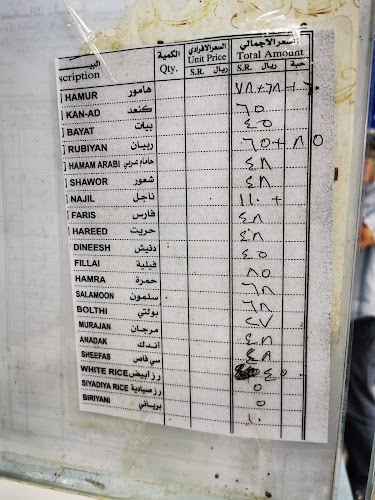 الكمية السعر الافرادي السعر الاجمالي
scription Qty. Unit Price Total Amount
S.R. ريال S.R. ريال حبة
HAMUR هامور ٧٨+٦٨+
KAN-AD كنعد ٦٥
BAYAT بيات ٤٥
RUBIYAN ربيان ٦٥+٨٥
HAMAM ARABI حامام عربي ٤٨
SHAWOR شعور ٤٨
NAJIL ناجل ١١٠+
FARIS فارس ٤٨
HAREED حريت ٤٨
DINEESH دنيش ٤٥
FILLAI فيلية ٨٥
HAMRA حمرة ٦٨
SALAMOON سلمون ٦٨
BOLTHI بولتي ٢٧
MURAJAN مرجان ٤٨
ANADAK اندك ٤٨
SHEEFAS سي فاس ٤٥
WHITE RICE رز ابيض ٥
SIYADIYA RICE رز صيادية ٥
BIRIYANI برياني ١٠